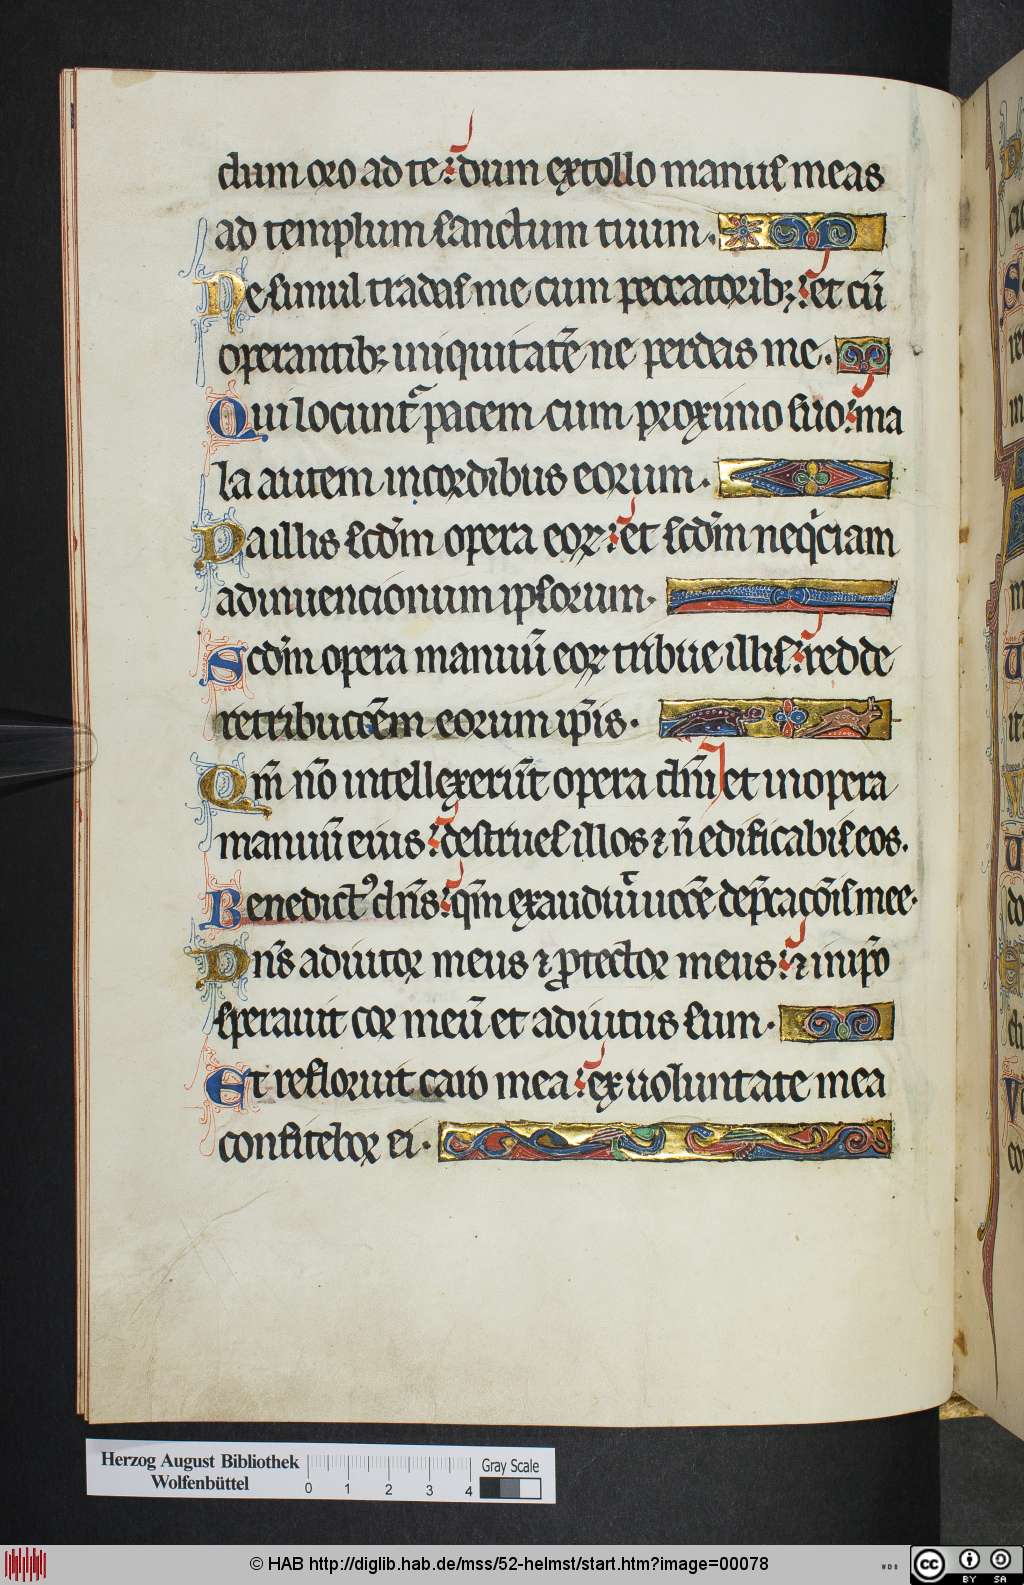 dum oro ad te: dum extollo manus meas
ad templum sanctum tuum.
Ne simul tradas me cum peccatoribꝫ: et cū
operantibꝫ iniquitatē ne perdas me.
Qui locunt᷑ pacem cum proximo suo: ma
la autem in cordibus eorum.
Da illis scdm̄ opera eoꝝ: et scdm̄ neqͥciam
adinuencionum ipsorum.
Scdm̄ opera manuū eoꝝ tribue illis: redde
retribuccēm eorum ip̄is.
Qm̄ nō intellexerūt opera dn̄i et in opera
manuū eius: destrues illos ⁊ n̄ edificabis eos.
Benedictꝰ dn̄s: qm̄ exaudiuit uocē dep̄cacōis mee.
Dn̄s adiutor meus ⁊ ꝓtector meus: ⁊ in ip̄o
sperauit cor meū et adiutus sum.
Et refloruit caro mea: ex uoluntate mea
confitebor ei.
Herzog August Bibliothek
Wolfenbüttel
0 1 2 3 4
Gray Scale
© HAB http://diglib.hab.de/mss/52-helmst/start.htm?image=00078
WDB
CC BY SA